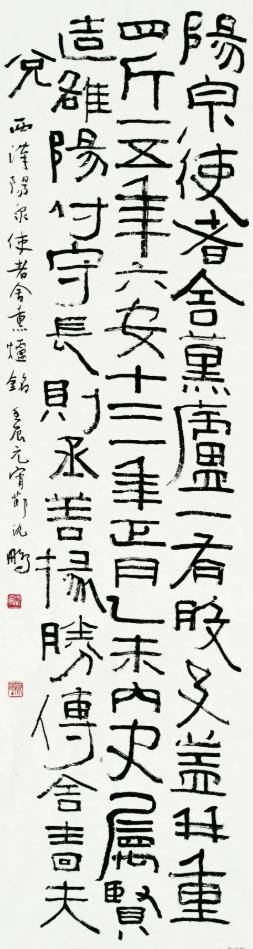 陽泉使者舍薰盧一有般及蓋并重
四斤一五年六安十三年正月乙未內史屬賢
造雒陽付守長則丞善掾勝傳舍嗇夫
兌
西漢陽泉使者舍熏爐銘 壬辰元宵節沈鵬